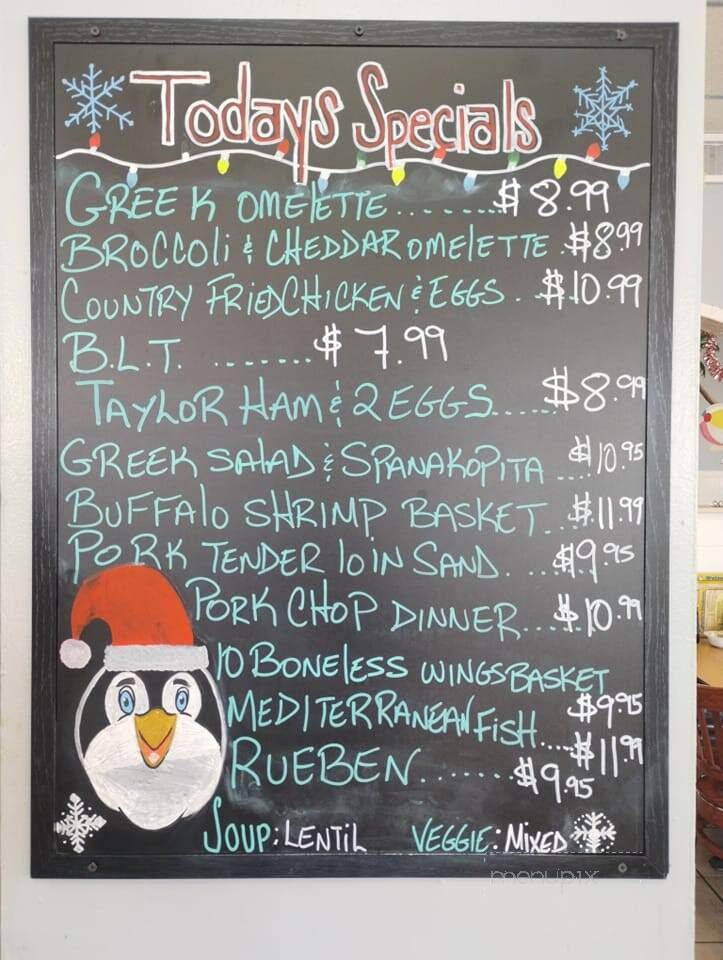 Todays Specials
GREEK OMElETTE........$8.99
BROCColi & CHEDDAR OMElETTE.$8.99
COUNTRY FRiED CHICKEN & EGGS..$10.99
B.L.T. ........$7.99
TAYLOR HAM & 2 EGGS......$8.99
GREEK SAlAD & SPANAKOPITA...$10.95
BUFFAlO SHRIMP BASKET..$11.99
PORK TENDER lOIN SAND. ...$9.95
PORK CHOP DINNER....$10.99
10 BONEless WINGS BASKET
$9.95
MEDITERRANEAN FISH....$11.99
RUEBEN.......$9.95
SOUP: LENTiL VEGGIE: MIXED
menupix